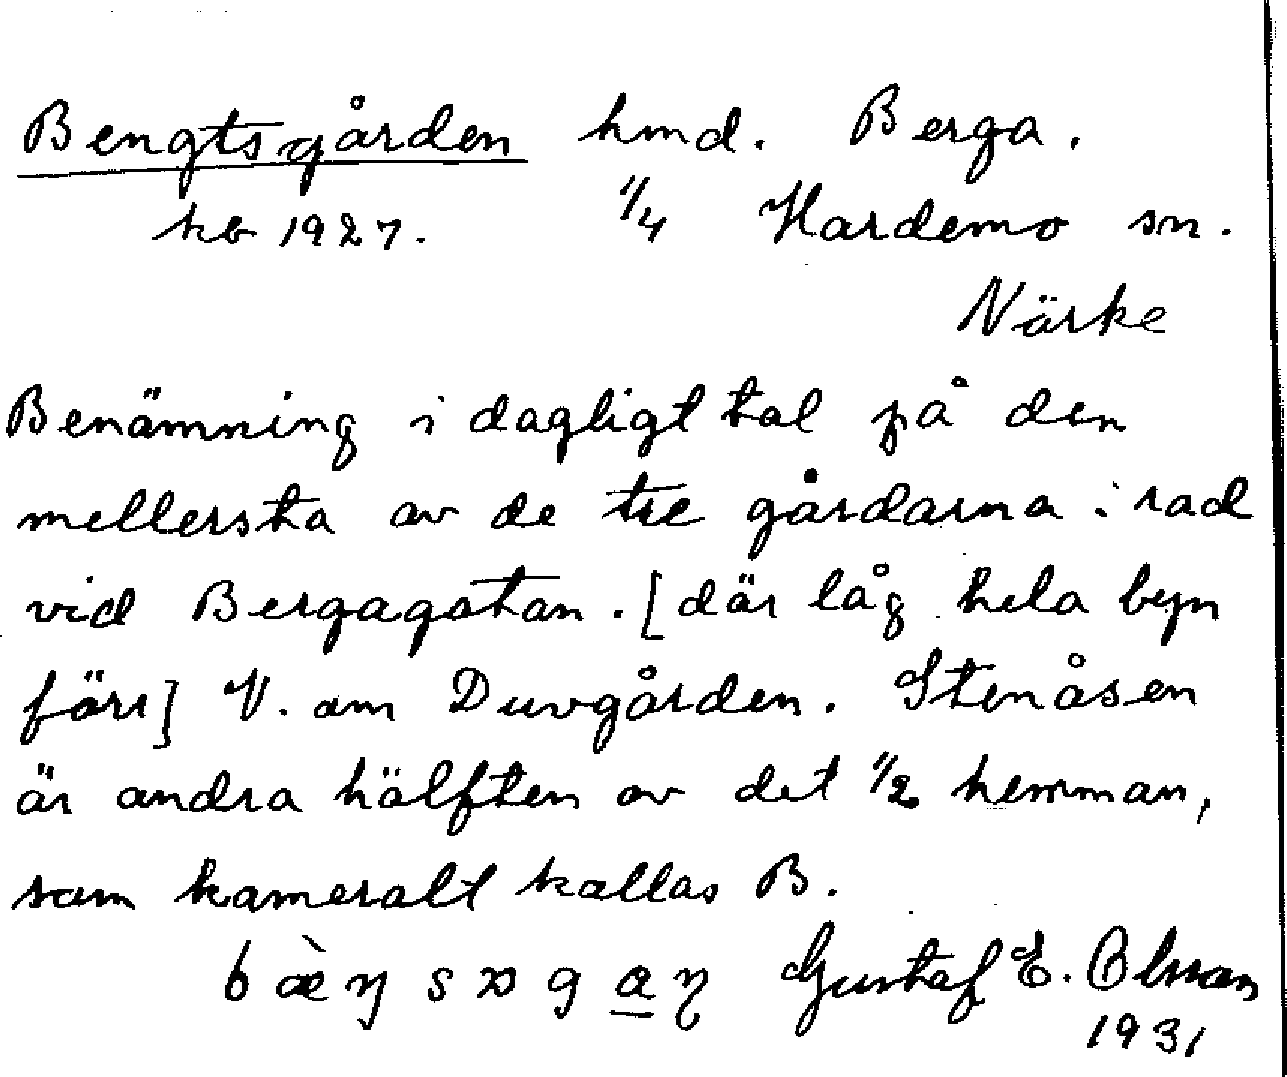 Bengtsgården hmd. Berga.
kb 1927. 1/4 Hardemo sn.
Närke
Benämning i dagligt tal på den
mellersta av de tre gårdarna i rad
vid Bergagatan. [där låg hela byn
förr] V. om Duvgården. Stenåsen
är andra hälften av det 1/2 hemman,
som kameralt kallas B.
Gustaf E. Olsson
1931